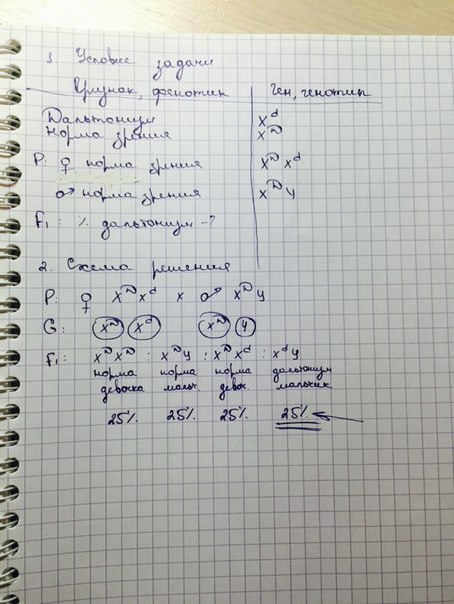 1. Условие задачи
Признак, фенотип | Ген, генотип
Дальтонизм X^d
Норма зрения X^D
P: ♀ норма зрения X^D X^d
♂ норма зрения X^D У
F₁: % дальтонизм -?
2. Схема решения
P: ♀ X^D X^d x ♂ X^D У
G: X^D X^d X^D У
F₁: X^D X^D : X^D У : X^D X^d : X^d У
норма норма норма дальтонизм
девочка мальч. девоч. мальчик
25% 25% 25% 25%